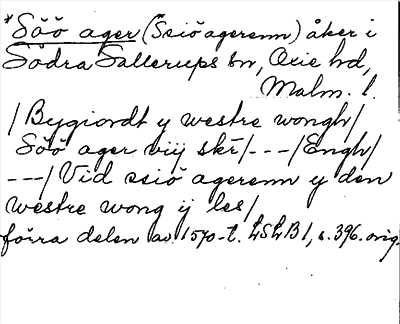 *Söö ager (Ssiöagerenn) åker i
Södra Sallerups sn, Oxie hd,
Malm. l.
/Bygiordt y westre wongh/
Söö ager viij skr/---/Engh/
---/Vid ssiö agerenn y den
westre wong ij les/
förra delen av 1570-t. LSLB 1, s. 396. orig.